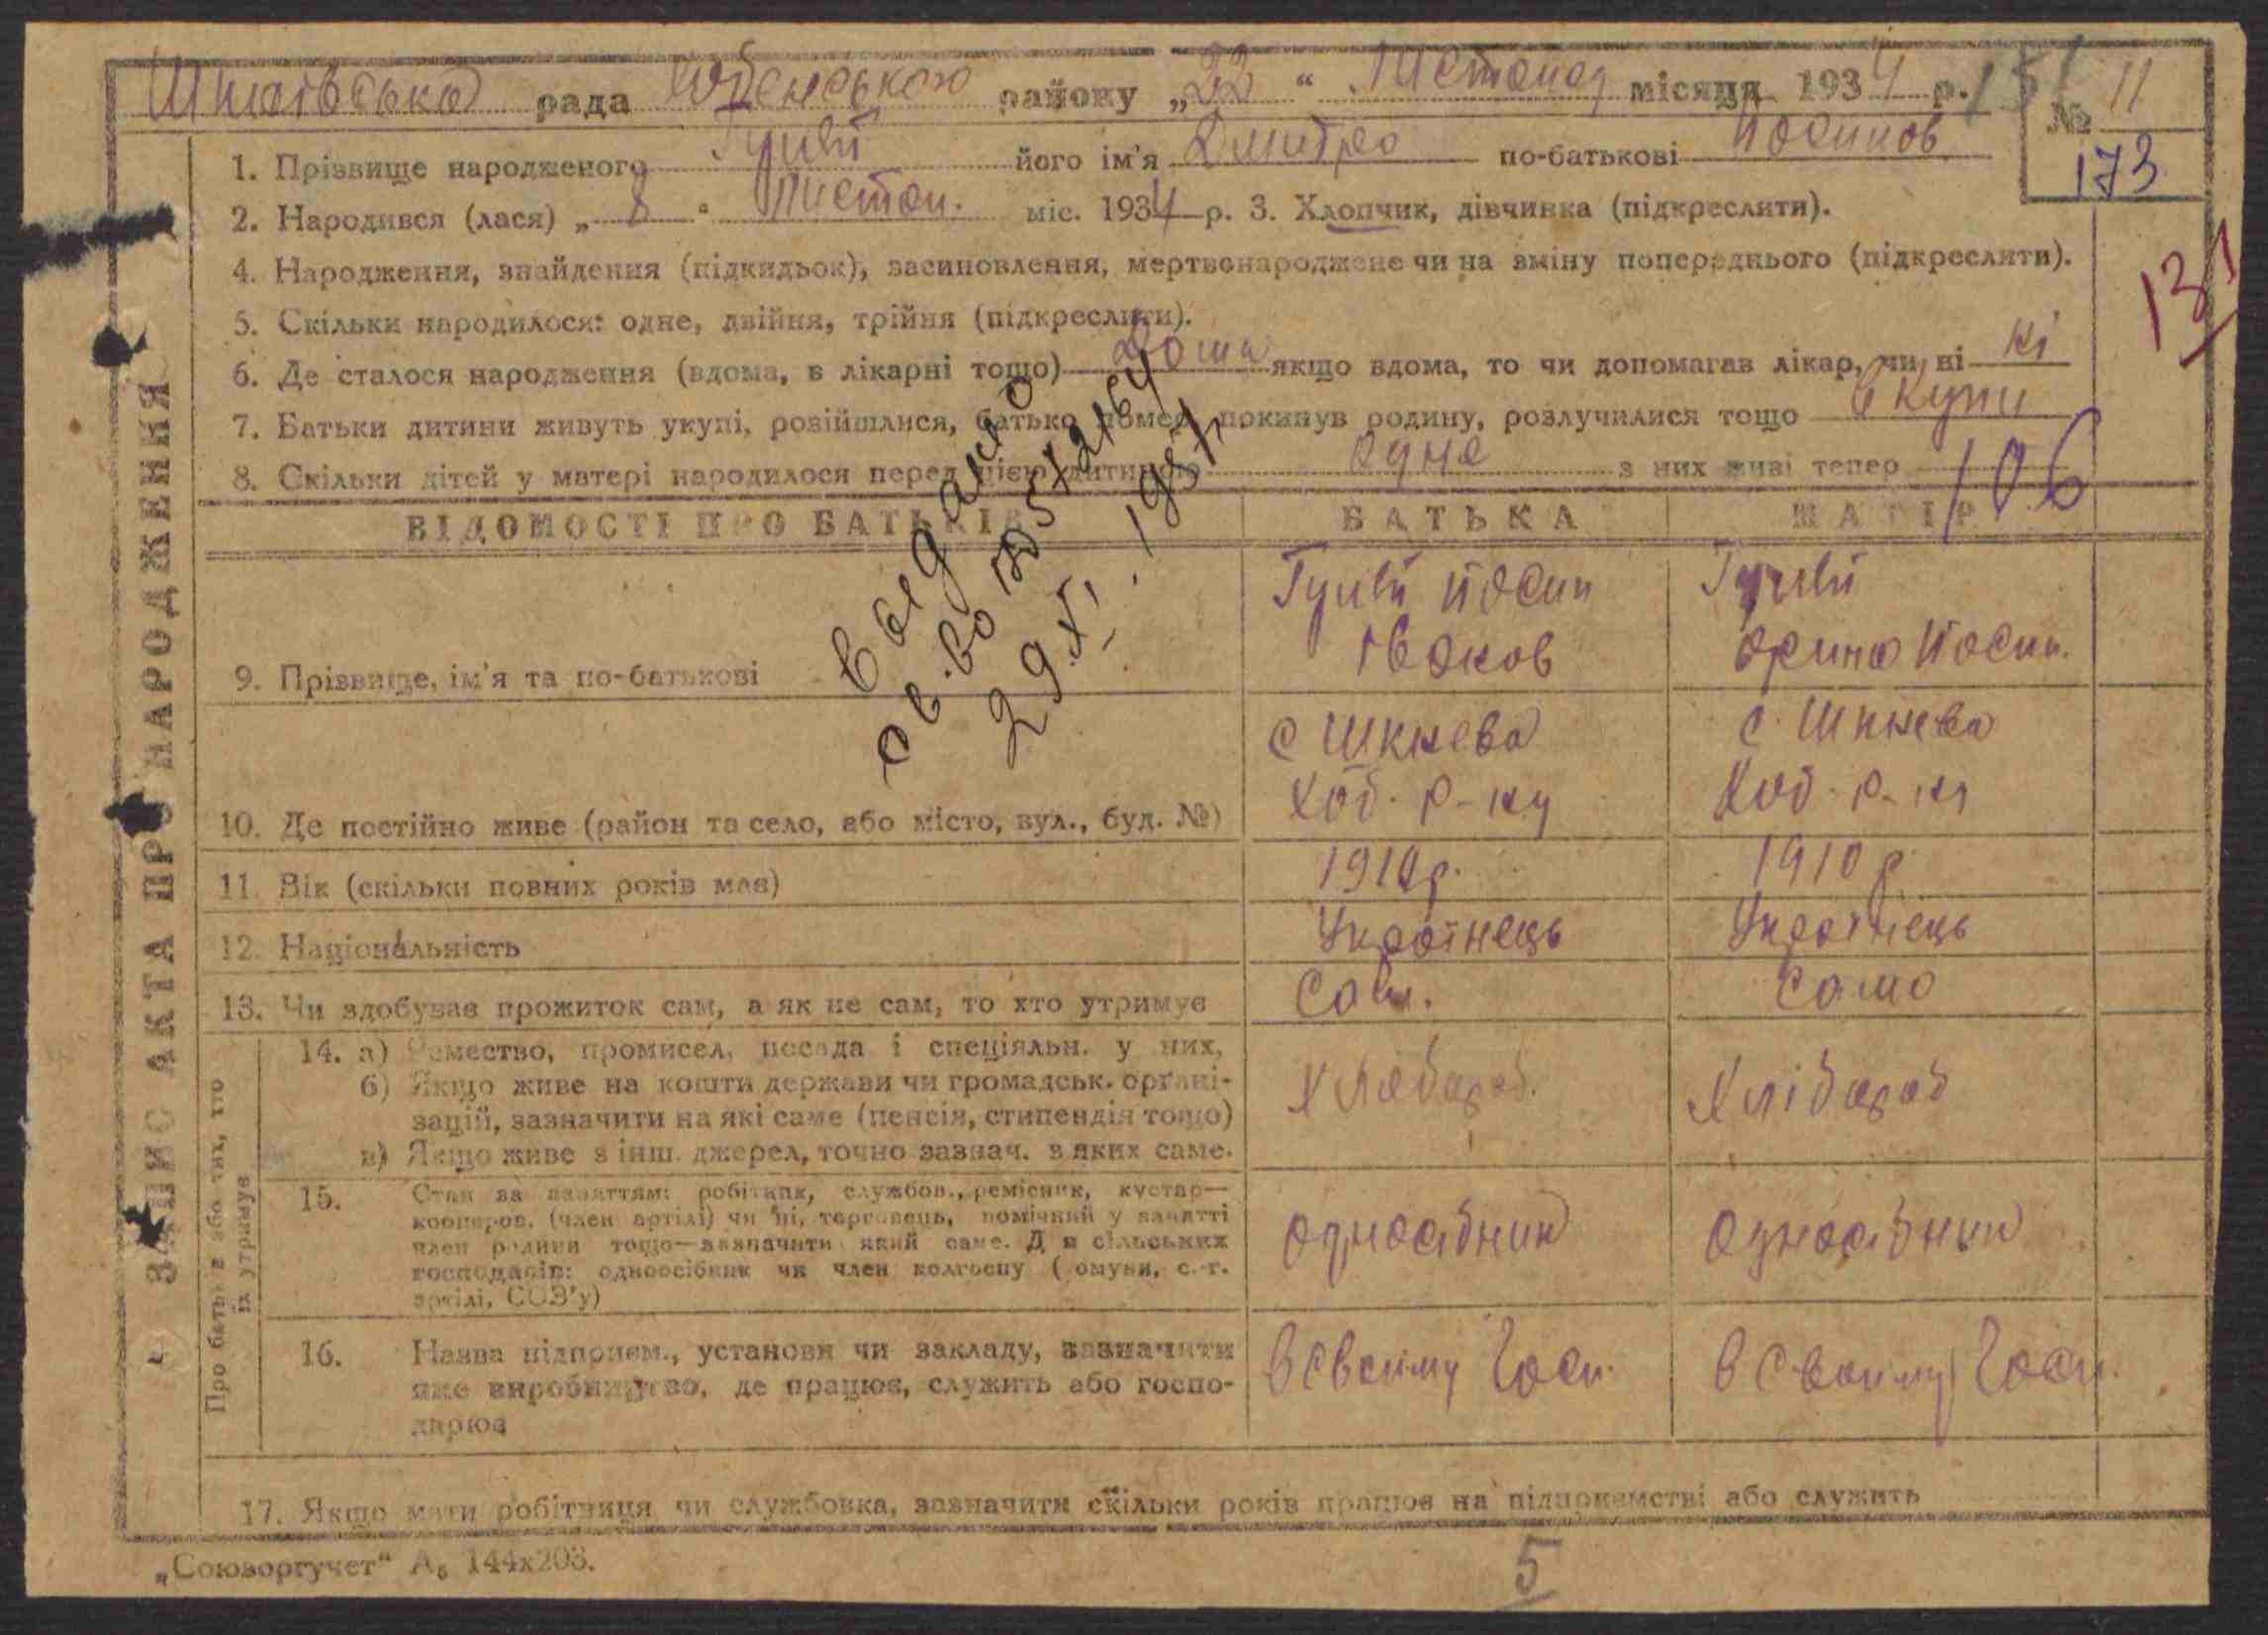 рада району „22“ Листопад місяця 1934 р. № 11
173
1. Прізвище народженого Гулій його ім'я Дмитро по-батькові Йосипов
2. Народився (лася) „8“ Листоп. міс. 1934 р. 3. Хлопчик, дівчинка (підкреслити).
131
4. Народження, знайдення (підкидьок), засиновлення, мертвонароджене чи на зміну попереднього (підкреслити).
5. Скільки народилося: одне, двійня, трійня (підкреслити).
6. Де сталося народження (вдома, в лікарні тощо) Дома якщо вдома, то чи допомагав лікар, чи ні ні
7. Батьки дитини живуть укупі, розійшлися, батько помер, покинув родину, розлучилися тощо вкупи
8. Скільки дітей у матері народилося перед цією дитиною одне з них живі тепер
106
ВІДОМОСТІ ПРО БАТЬКІВ БАТЬКА МАТІР
9. Прізвище, ім'я та по-батькові Гулій Йосип Гулій Йосип.
10. Де постійно живе (район та село, або місто, вул., буд. №) с Шкнева Ход. р-ну с. Шкнева Ход. р-ну
11. Вік (скільки повних років має) 1910 р. 1910 р.
12. Національність Українець Українець
13. Чи здобуває прожиток сам, а як не сам, то хто утримує Сам. Само
14. а) Ремество, промисел, посада і спеціяльн. у них,
б) Якщо живе на кошти держави чи громадськ. органі-
зацій, зазначити на які саме (пенсія, стипендія тощо)
в) Якщо живе з інш. джерел, точно зазнач. з яких саме.
Хлібороб. Хлібороб
15. Стан за заняттям: робітник, службов., ремісник, кустар—
кооперов. (член артілі) чи ні, торговець, помічний у занятті
член родини тощо—зазначити який саме. Для сільських
господарів: одноосібник чи член колгоспу (комуни, с.-г.
артілі, СОЗ'у)
одноосібник одноосібник
16. Назва підприєм., установи чи закладу, зазначити
яке виробництво, де працює, служить або госпо-
дарює
В своїму Госп. В своїму Госп.
17. Якщо мати робітниця чи службовка, зазначити скільки років працює на підприємстві або служить
„Союзоргучет“ А₅ 144х203.
5
ЗАПИС АКТА ПРО НАРОДЖЕННЯ
Про батька або тих, хто
їх утримує
выдано
св.во
29.XI.1957